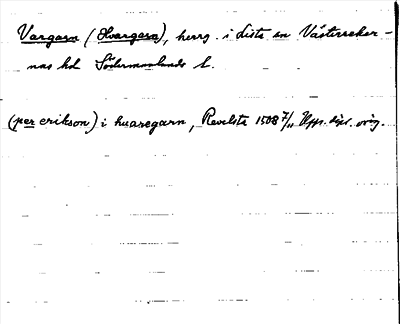 Vargarn (Hvargarn), herrg. i Lista sn Västerrekar-
nas hd Södermanlands l.
(per erikson) i huaregarn, Revelsta 1508 7/11 Upps. dipl. orig.